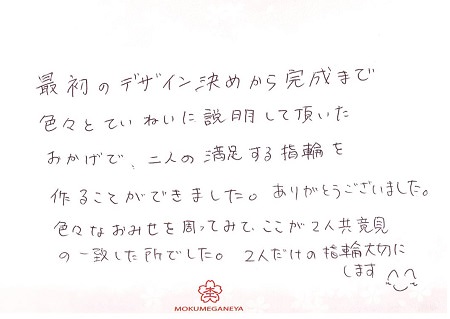 最初のデザイン決めから完成まで
色々とていねいに説明して頂いた
おかげで、二人の満足する指輪を
作ることができました。ありがとうございました。
色々なおみせを周ってみて、ここが2人共意見
の一致した所でした。2人だけの指輪大切に
します
MOKUMEGANEYA